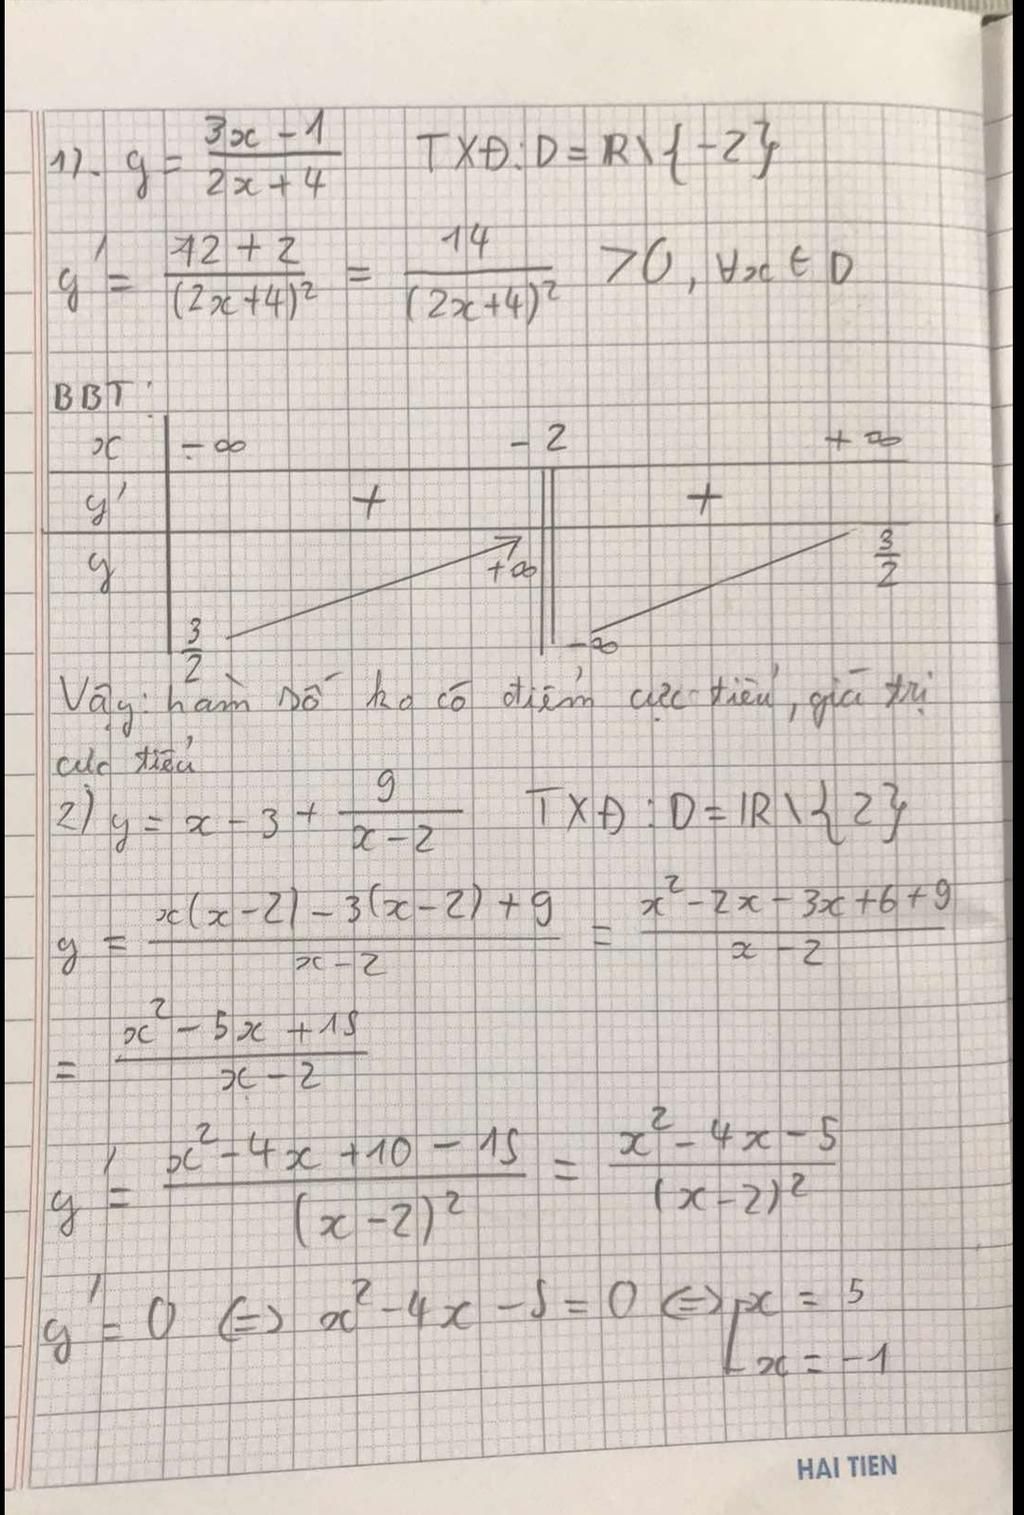 1). y = (3x - 1)/(2x + 4) TXĐ: D = R\{-2}
y' = (12 + 2)/(2x+4)² = 14/(2x+4)² >0, ∀x ∈ D
BBT:
x -∞ -2 +∞
y' + +
y 3/2 +∞ -∞ 3/2
Vậy: hàm số ko có điểm cực tiểu, giá trị
cực tiểu
2) y = x - 3 + 9/(x - 2) TXĐ: D = R\{2}
y = (x(x-2) - 3(x-2) + 9)/(x-2) = (x² - 2x - 3x + 6 + 9)/(x - 2)
= (x² - 5x + 15)/(x - 2)
y' = (x² - 4x + 10 - 15)/(x - 2)² = (x² - 4x - 5)/(x - 2)²
y' = 0 ⇔ x² - 4x - 5 = 0 ⇔ [x = 5
x = -1
HAI TIEN